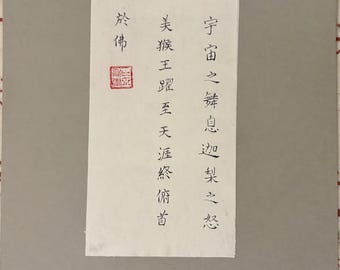 宇宙之舞息迦梨之怒
美猴王躍至天涯終俯首
於佛